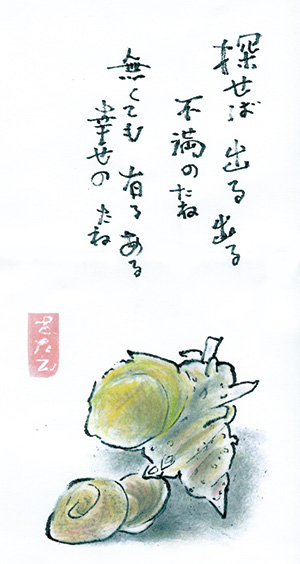 探せば 出る出る
不満のたね
無くても 有る ある
幸せの たね